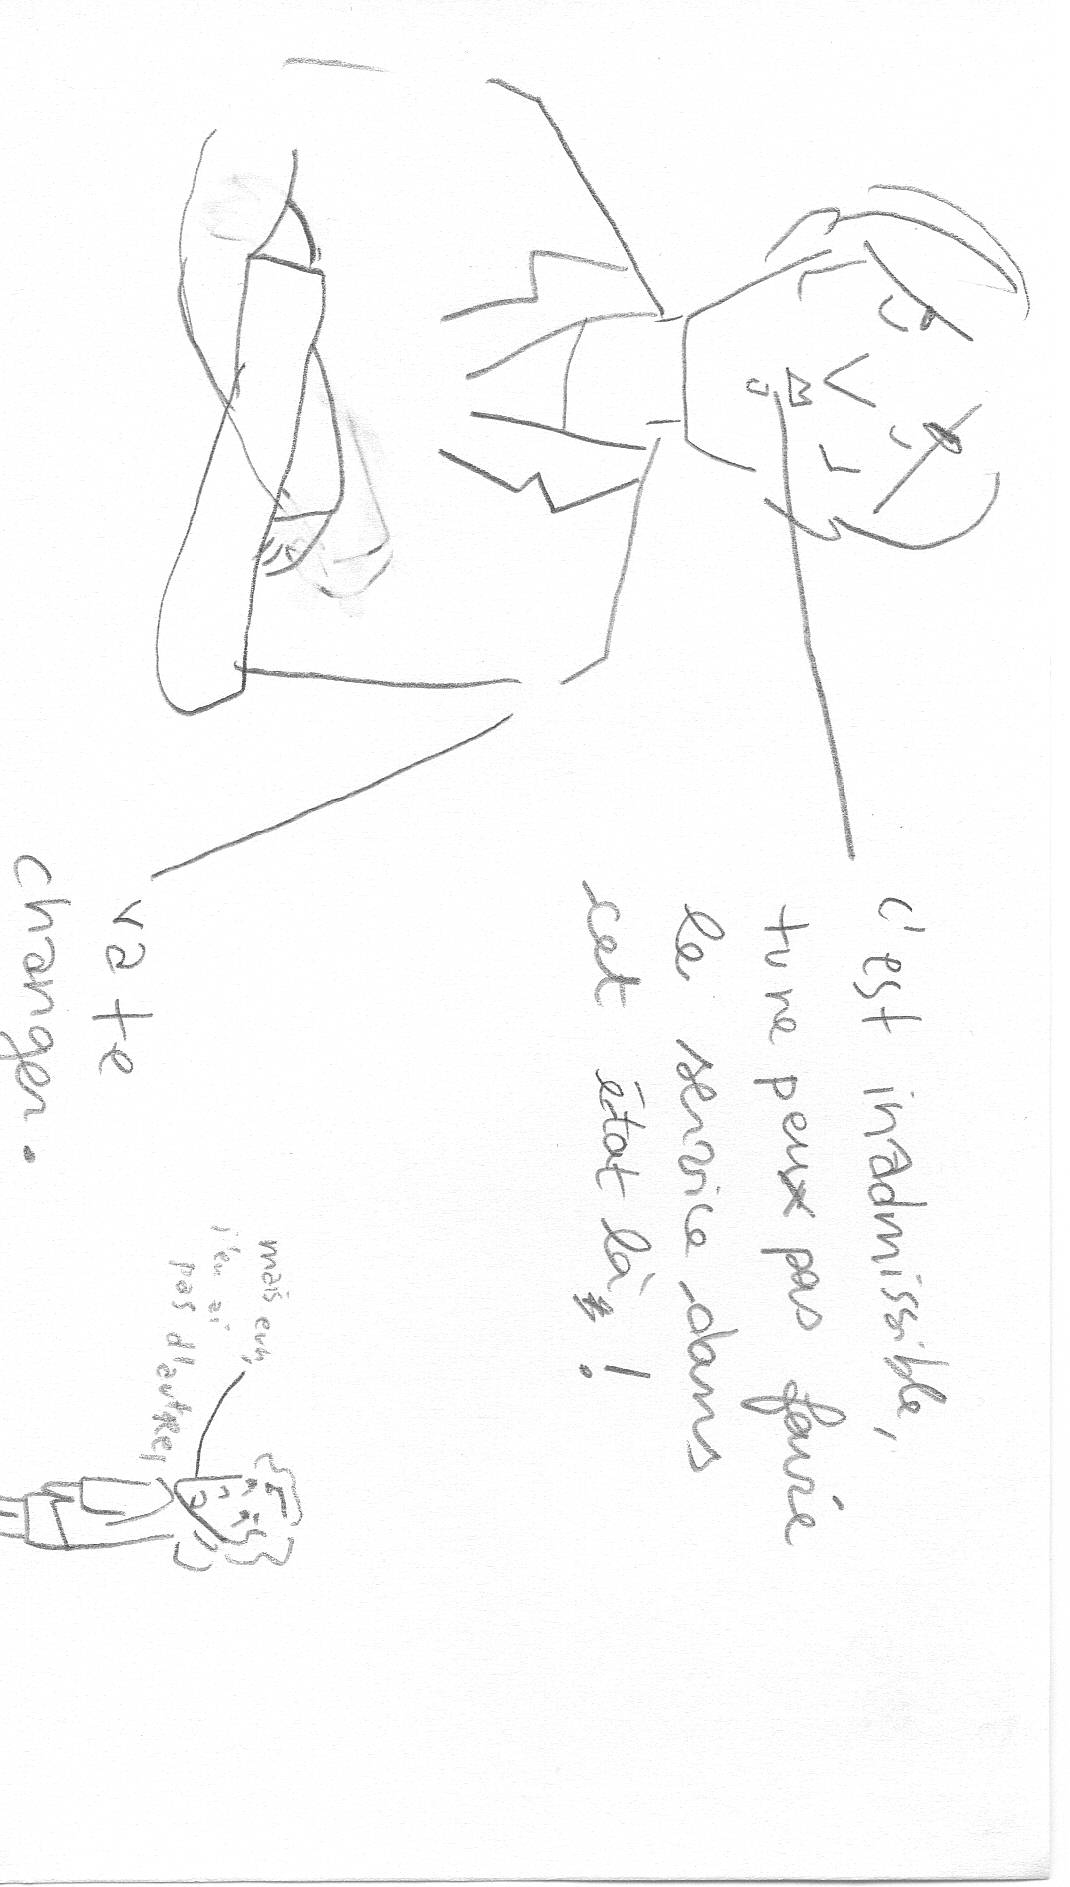 c'est inadmissible,
tu ne peux pas faire
le service dans
cet état là !
va te
changer.
mais euh,
j'en ai
pas d'autre,